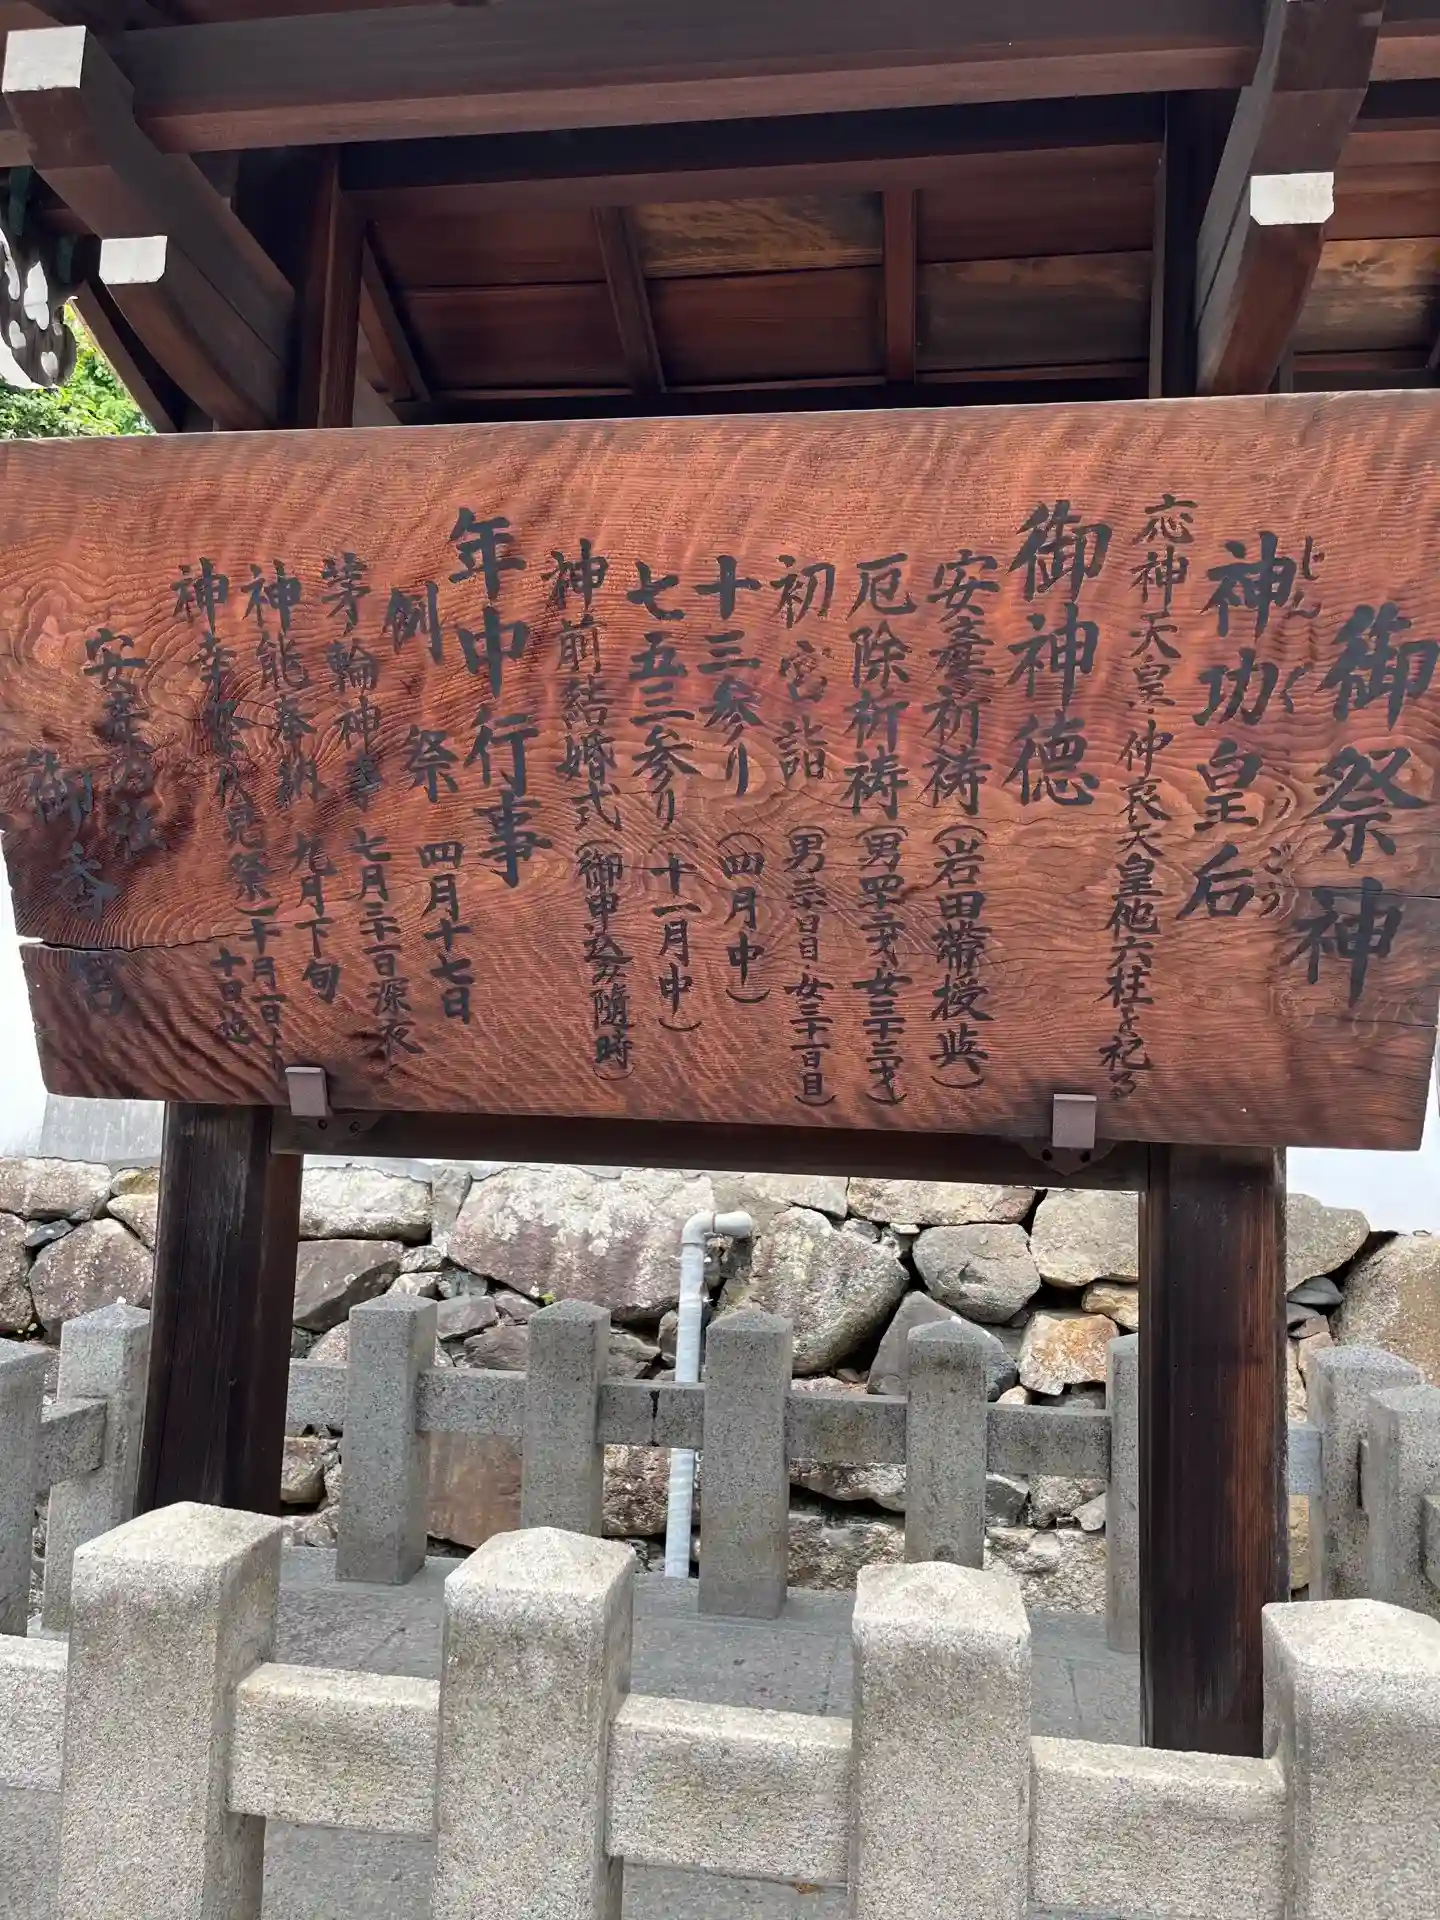 御祭神
神功皇后
じんぐうこうごう
応神天皇・仲哀天皇他六柱を祀る
御神徳
安産祈祷(岩田帯授与)
厄除祈祷(男四十二才・女三十三才)
初宮詣(男三十日目・女三十一日目)
十三参り(四月中)
七五三参り(十一月中)
神前結婚式(御申込み随時)
年中行事
例祭 四月十七日
茅ノ輪神事 七月三十一日深夜
神能奉納 九月下旬
神幸祭(伏見祭)十月一日ー十日地
安産の社
御香宮